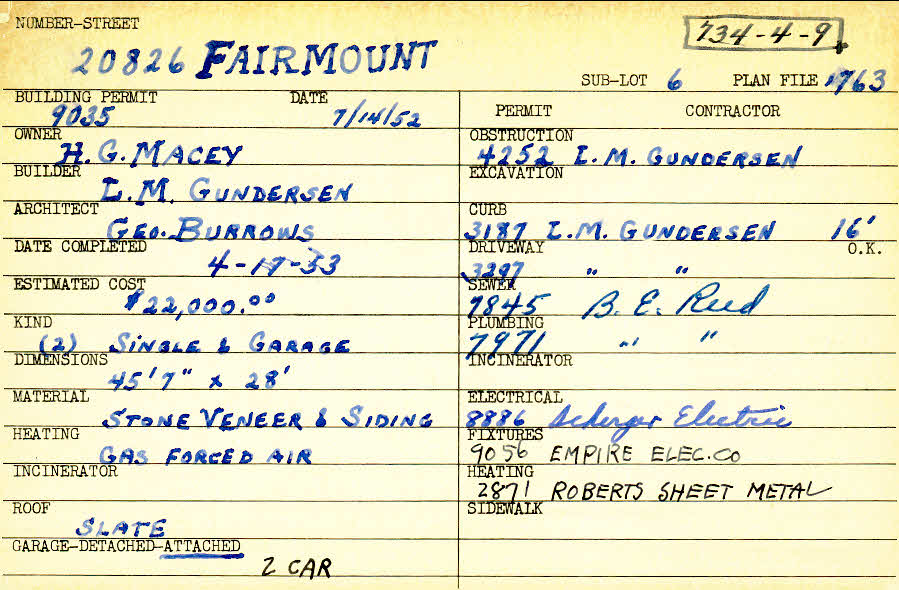 NUMBER-STREET
734-4-9
20826 FAIRMOUNT
SUB-LOT 6 PLAN FILE 763
BUILDING PERMIT DATE
9035 7/14/52
OWNER
H. G. MACEY
BUILDER
L. M. GUNDERSEN
ARCHITECT
GEO. BURROWS
DATE COMPLETED
4-17-53
ESTIMATED COST
$22,000.00
KIND
(2) SINGLE & GARAGE
DIMENSIONS
45'7" x 28'
MATERIAL
STONE VENEER & SIDING
HEATING
GAS FORCED AIR
INCINERATOR
ROOF
SLATE
GARAGE-DETACHED-ATTACHED
2 CAR
PERMIT CONTRACTOR
OBSTRUCTION
4252 L. M. GUNDERSEN
EXCAVATION
CURB
3187 L. M. GUNDERSEN 16'
DRIVEWAY O.K.
3297 " "
SEWER
7845 B. E. Reed
PLUMBING
7971 " "
INCINERATOR
ELECTRICAL
8886 Electric
FIXTURES
9056 EMPIRE ELEC. CO
HEATING
2871 ROBERTS SHEET METAL
SIDEWALK